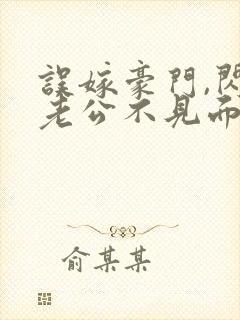 誤嫁豪門,閃
老公不見而
俞某某